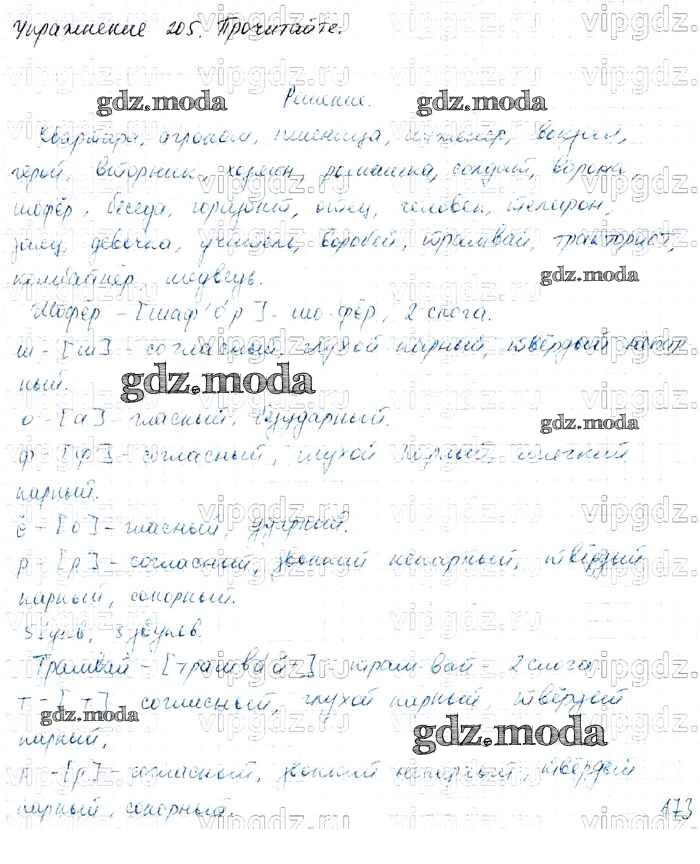 Упражнение 205. Прочитайте.
Решение.
Квартира, агроном, пшеница, инженер, вокзал,
герой, вторник, хозяин, ромашка, солдат, ворона,
шофёр, беседа, горизонт, отец, человек, телефон,
заяц, девочка, учитель, воробей, трамвай, тракторист,
комбайнёр, медведь.
Шофёр - [шаф'о́р] - шо-фёр, 2 слога.
ш - [ш] - согласный, глухой парный, твёрдый непар
ный.
о - [а] - гласный, безударный.
ф - [ф'] - согласный, глухой парный, мягкий
парный.
ё - [о́] - гласный, ударный.
р - [р] - согласный, звонкий непарный, твёрдый
парный, сонорный.
5 букв, 5 звуков.
Трамвай - [трамва́й'] - трам-вай - 2 слога
т - [т] согласный, глухой парный, твёрдый
парный,
р - [р] - согласный, звонкий непарный, твёрдый
парный, сонорный.
173
gdz.moda
gdz.moda
gdz.moda
gdz.moda
gdz.moda
gdz.moda
gdz.moda
vipgdz.ru